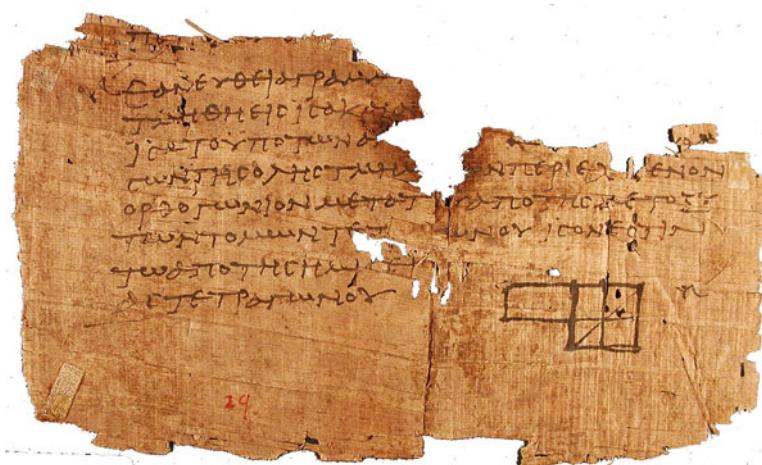 ΕΑΝΕΥΘΕΙΑΓΡΑΜΜ
ΤΜΗΘΗΕΙΣΙΣΑΚΑΙΑ
ΙΣΑΤΟΥΠΟΤΩΝΑ
ΤΩΝΤΗΣΟΛΗΣΤΜΗΜΑ ΩΝΠΕΡΙΕΧ ΜΕΝΟΝ
ΟΡΘΟΓΩΝΙΟΝΜΕΤΟΤ ΑΠΟΤΗΣΜΕΤΟΞΥ
ΤΩΝΤΟΜΩΝΤΕΤ ΩΝΟΥΙΣΟΝΕΣΤΙΝ
ΤΩΑΠΟΤΗΣΗΜΙΣ
ΑΣΤΕΤΡΑΓΩΝΟΥ
29